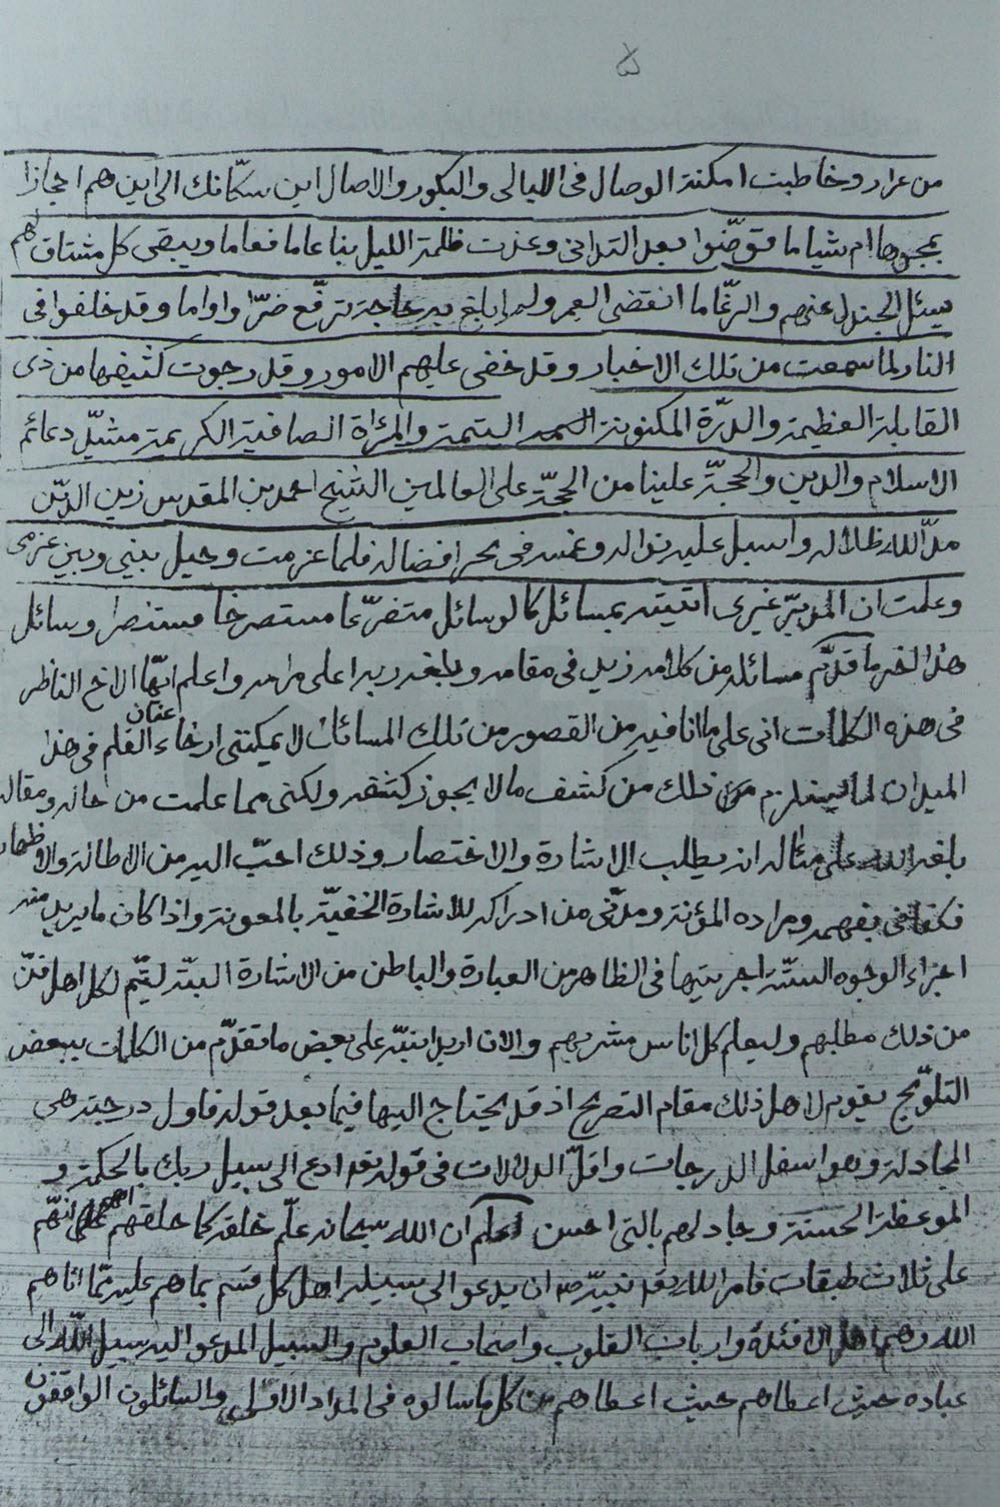 ۵
من عرار وخاطبت امكنة الوصال فى الليالى والبكور والاصال اين سكانك الى اين هم احجازا
يمموها ام شياما قوّضوا بعد التدانى وعزت ظلمة الليل بنا عاما فعاما ويبقى كل مشتاق لهم
يسئل الجندل عنهم والرغاما انقضى العمر ولم ابلغ به حاجة ترفع ضرّا واواما وقد خلفوا فى
النار لما سمعت من تلك الاخبار وقد خفى عليهم الامور وقد رجوت كشفها من ذى
القابلة العظيمة والدرّة المكنونة اليتيمة والمرءاة الصافية الكريمة مشيّد دعائم
الاسلام والدين والحجة علينا من الحجّة على العالمين الشيخ احمد بن المقدس زين الدين
مدّ الله ظلاله واسبل عليه نواله وغمسه فى بحر افضاله فلما عزمت وحيل بينى وبين عزمى
وعلمت ان غيرى اتيته بمسائل كالوسائل متضرّعا مستصرخا مستنصرا وسائل
هذا الخبر ما قدّم مسائله من كلامه زيد فى مقامه وبلغه ربه اعلى مرامه واعلم ايّها الاخ الناظر
فى هذه الكلمات انى على ما انا فيه من القصور من تلك المسائل لا يمكننى ارخاء عنان القلم فى هذا
الميدان لما يستلزم من ذلك من كشف ما لا يجوز كشفه ولكنى مما علمت من حاله ومقاله
بلغه الله على مثاله انه يطلب الاشارة والاختصار وذلك احبّ اليه من الاطالة والاظهار
فكفانى بفهمه ومراده المؤنة ومدّنى من ادراكه للاشارة الخفيّة بالمعونة واذا كان ما يريد منه
اجراء الوجوه الستّة اجريتها فى الظاهر من العبارة والباطن من الاشارة البتة ليتمّ لكل اهل فنّ
من ذلك مطلبهم وليعلم كل اناس مشربهم والان اريد انبّه على بعض ما تقدّم من الكلمات ببعض
التلويح يقوم لاهل ذلك مقام التصريح اذ قد يحتاج اليها فيما بعد قوله فاول درجته هى
المجادلة وهو اسفل الدرجات واقلّ الدلالات فى قوله تعه ادع الى سبيل ربك بالحكمة و
الموعظة الحسنة وجادلهم بالتى احسن اعلم ان الله سبحانه علّم خلقه كما خلقهم انهم
على ثلاث طبقات فامر الله نبيّه ص ان يدعو الى سبيله اهل كل قسم بما هم عليه ممّا اتاهم
الله وهم اهل الافئدة وارباب القلوب واصحاب العلوم والسبيل المدعو اليه سبيل الله الى
عباده حيث اعطاهم حيث اعطاهم من كل ما سالوه فى المداد الاوّلى والسائلون الواقفون